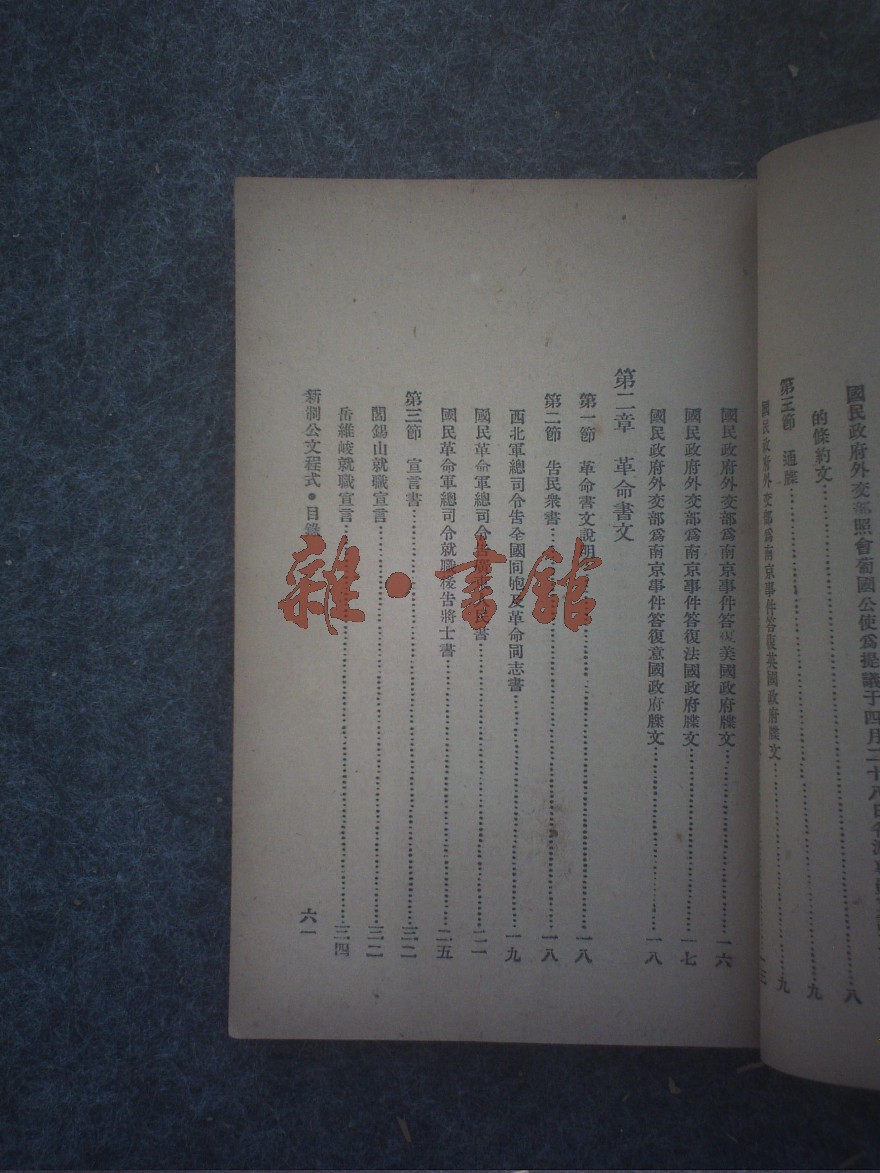 國民政府外交部照會葡國公使爲提議于四月二十八日
的條約文……九
第三節 通牒……九
國民政府外交部爲南京事件答復英國政府牒文
國民政府外交部爲南京事件答復美國政府牒文……一六
國民政府外交部爲南京事件答復法國政府牒文……一七
國民政府外交部爲南京事件答復意國政府牒文……一八
第二章 革命書文
第一節 革命書文說明……一八
第二節 告民衆書……一八
西北軍總司令告全國同胞及革命同志書……一九
國民革命軍總司令告 人民書……二一
國民革命軍總司令就職後告將士書……二五
第三節 宣言書……三二
閻錫山就職宣言……三二
岳維峻就職宣言……三四
新制公文程式・目錄 六一
雜・書館